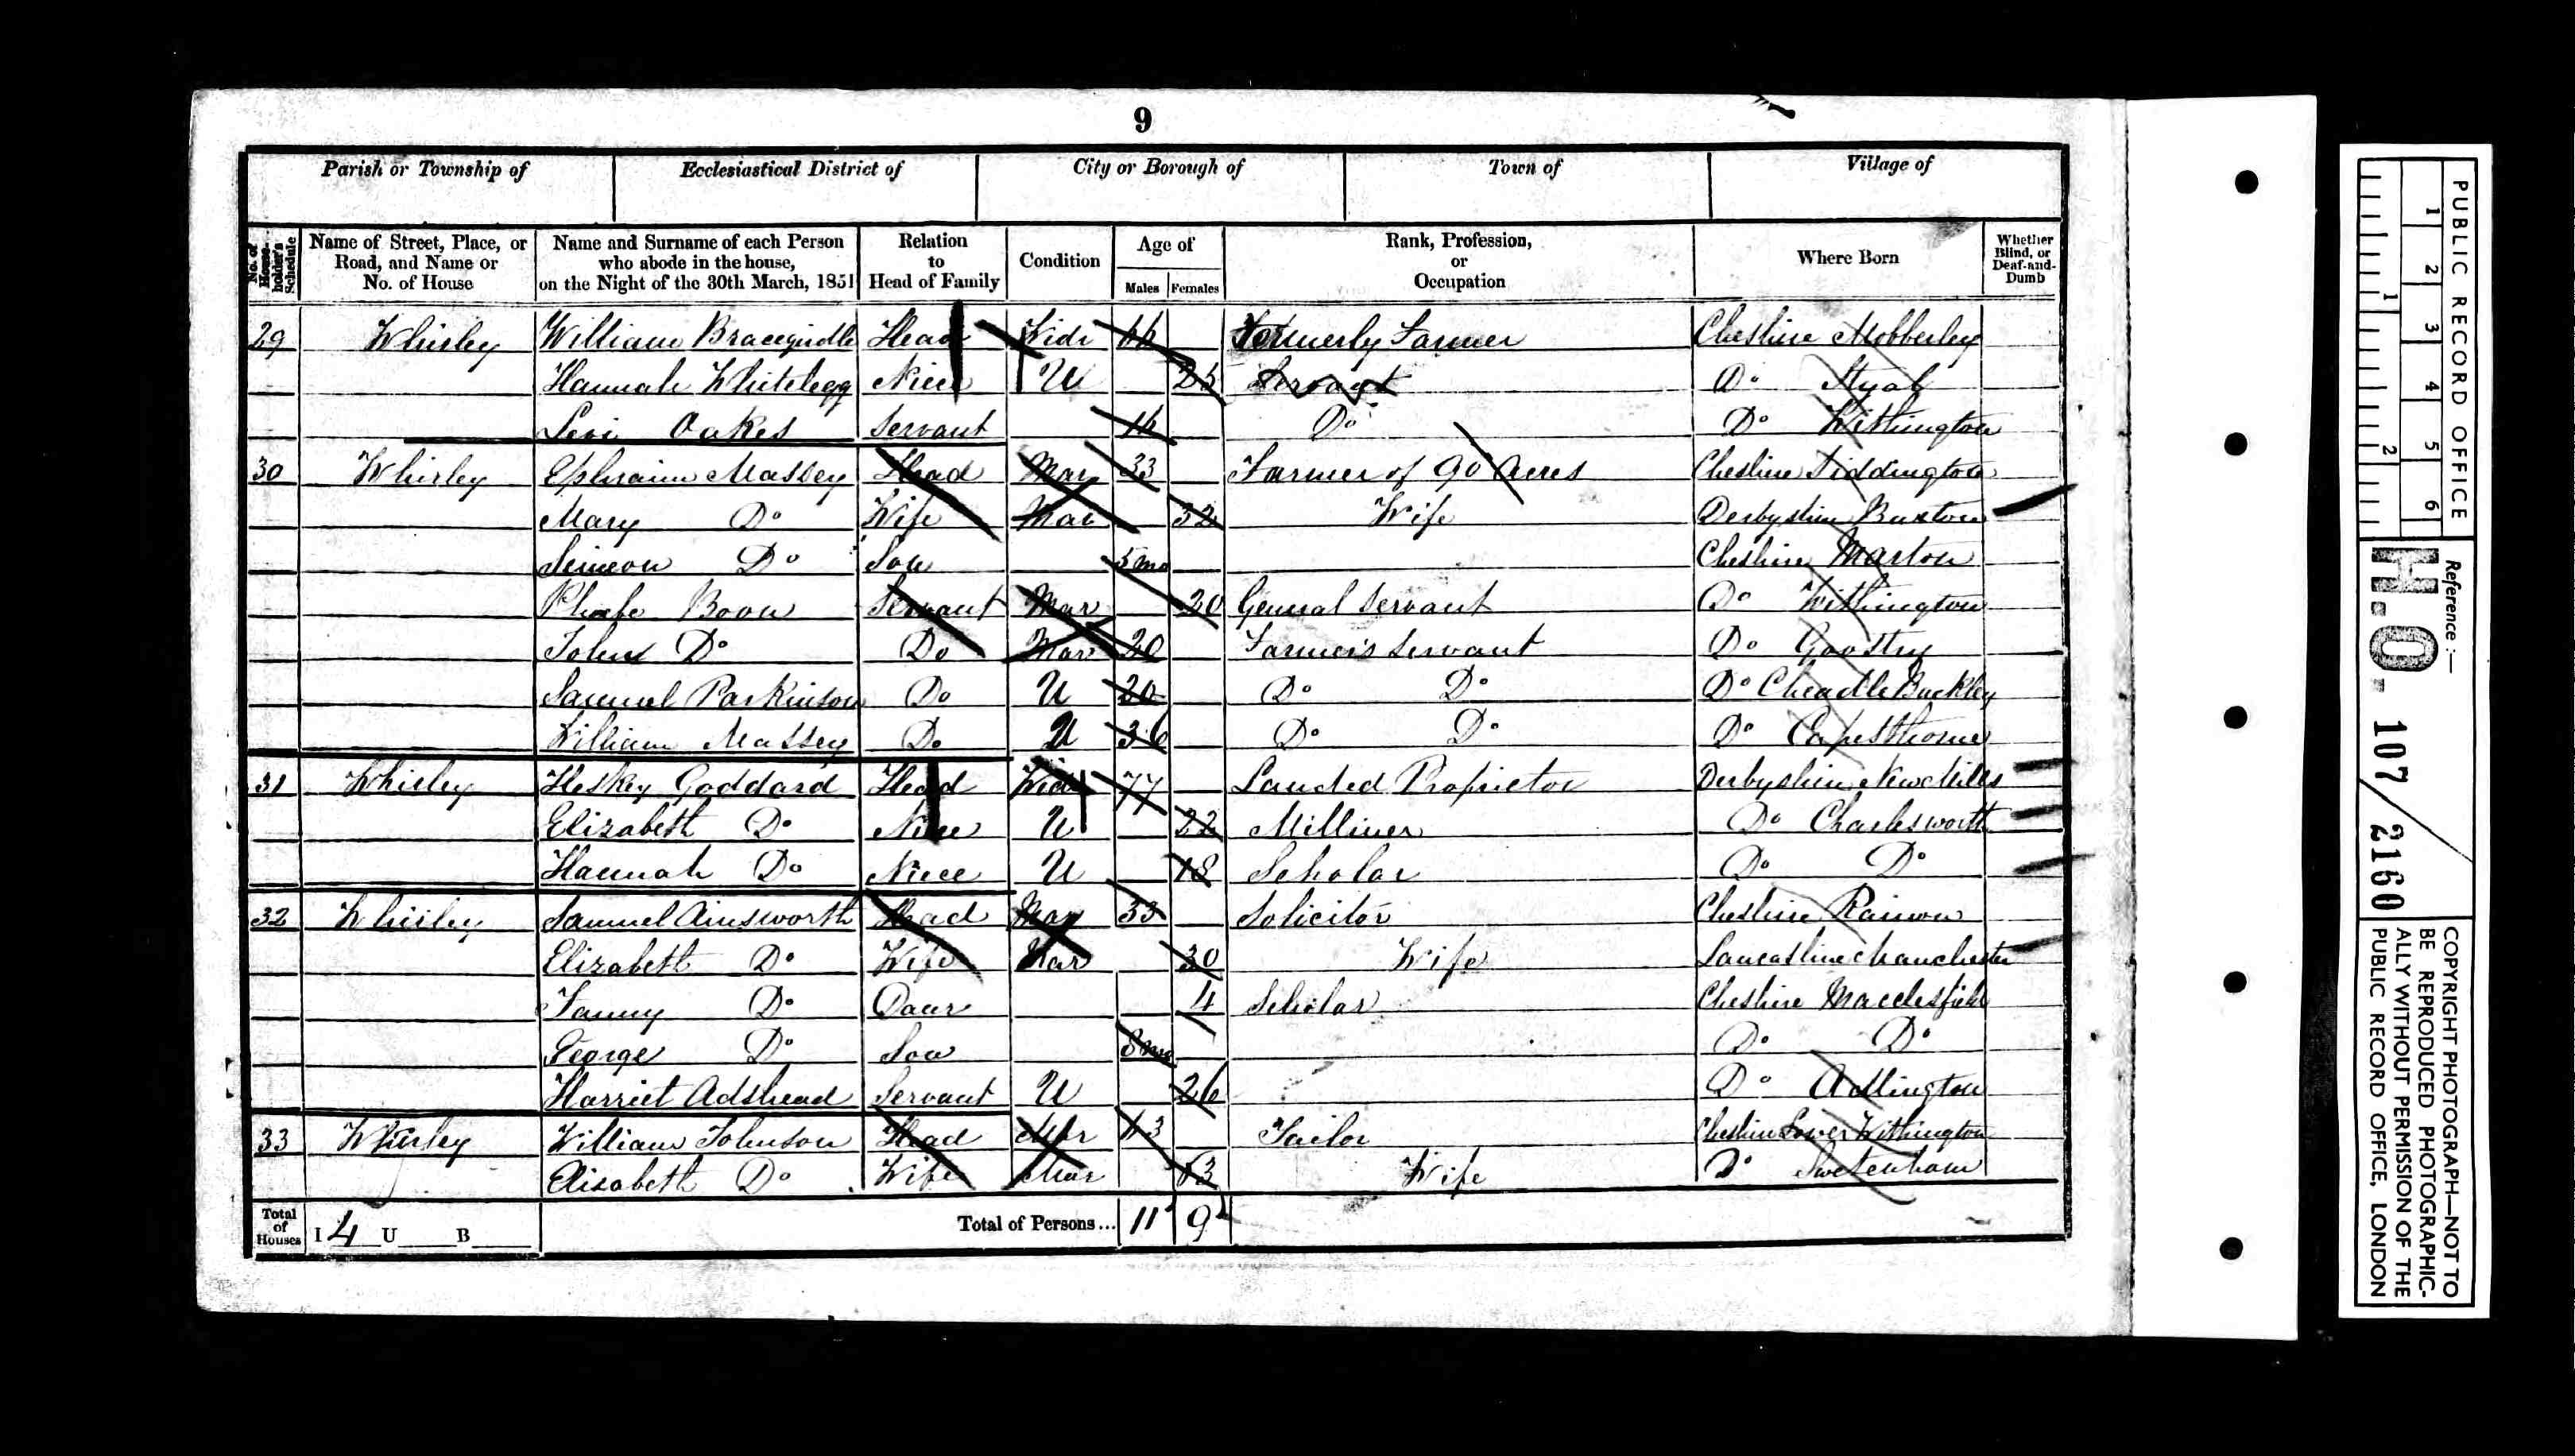 9
Parish or Township of Ecclesiastical District of City or Borough of Town of Village of
No. of House-holder's Schedule Name of Street, Place, or Road, and Name or No. of House Name and Surname of each Person who abode in the house, on the Night of the 30th March, 1851 Relation to Head of Family Condition Age of Males Females Rank, Profession, or Occupation Where Born Whether Blind, or Deaf-and-Dumb
29 Whirley William Bracegirdle Head Widr 66 Formerly Farmer Cheshire Mobberley
Hannah Whitelegg Niece U 25 Servant Do Styal
Levi Oakes Servant 16 Do Do Withington
30 Whirley Ephraim Massey Head Mar 33 Farmer of 90 Acres Cheshire Siddington
Mary Do Wife Mar 32 Wife Derbyshire Buxton
Simeon Do Son 5 mo Cheshire Marton
Phoebe Boon Servant Mar 20 General Servant Do Withington
John Do Do Mar 20 Farmer's Servant Do Goostry
Samuel Parkinson Do U 20 Do Do Do Cheadle Buckley
William Massey Do U 36 Do Do Do Capesthorne
31 Whirley Heskey Goddard Head Widr 77 Landed Proprietor Derbyshire New Mills
Elizabeth Do Niece U 22 Milliner Do Charlesworth
Hannah Do Niece U 18 Scholar Do Do
32 Whirley Samuel Ainsworth Head Mar 33 Solicitor Cheshire Rainow
Elizabeth Do Wife Mar 30 Wife Lancashire Manchester
Fanny Do Daur 4 Scholar Cheshire Macclesfield
George Do Son 8 mo Do Do
Harriet Adshead Servant U 26 Do Adlington
33 Whirley William Johnson Head Mar Tailor Cheshire Lower Withington
Elisabeth Do Wife Mar 63 Wife Do Swetenham
Total of Houses I 4 U B Total of Persons... 11 9
PUBLIC RECORD OFFICE
1 2 3 4 5 6
1 2
Reference :—
H.O. 107/2160
COPYRIGHT PHOTOGRAPH—NOT TO
BE REPRODUCED PHOTOGRAPHIC-
ALLY WITHOUT PERMISSION OF THE
PUBLIC RECORD OFFICE, LONDON